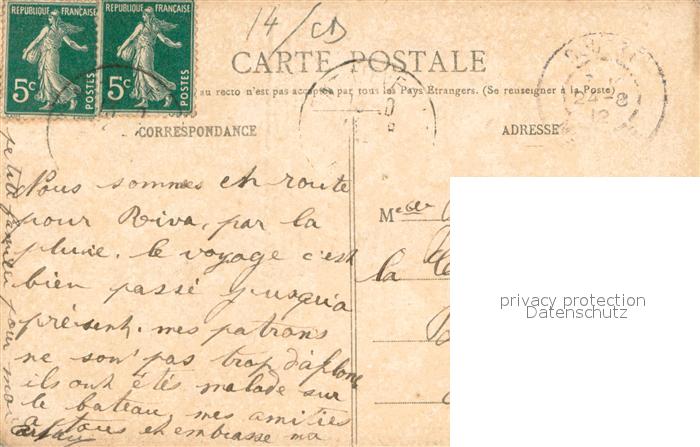 RÉPUBLIQUE FRANÇAISE
5c
POSTES
RÉPUBLIQUE FRANÇAISE
5c
POSTES
14/CD
CARTE POSTALE
au recto n'est pas acceptée par tous les Pays Étrangers. (Se renseigner à la Poste)
CORRESPONDANCE
ADRESSE
24-8
12
Nous sommes en route
pour Riva, par la
pluie. le voyage c'est
bien passé jusqu'a
présent. mes patrons
ne son pas trop d'aplomb
ils ont étés malade sur
le bateau. mes amitiés
a tous et embrasse ma
petite famille pour moi
M
la
privacy protection
Datenschutz